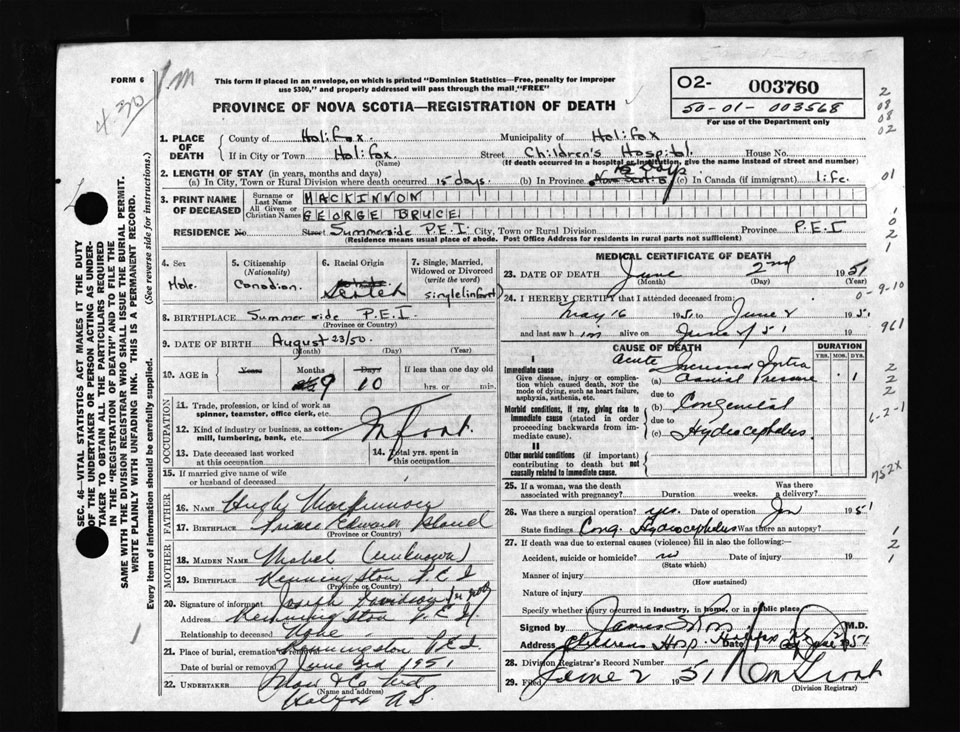 FORM 6
1m
4.30
This form if placed in an envelope, on which is printed "Dominion Statistics—Free, penalty for improper
use $300," and properly addressed will pass through the mail "FREE"
PROVINCE OF NOVA SCOTIA—REGISTRATION OF DEATH
O2- 003760
50-01-003568
For use of the Department only
2
08
08
02
1. PLACE OF DEATH County of Halifax. Municipality of Halifax
If in City or Town Halifax. (Name) Street Children's Hospital. House No.
(If death occurred in a hospital or institution, give the name instead of street and number)
2. LENGTH OF STAY (in years, months and days)
(a) In City, Town or Rural Division where death occurred 15 days. (b) In Province Nova Scotia days (c) In Canada (if immigrant) life.
01
3. PRINT NAME OF DECEASED
Surname or Last Name MACKINNON
All Given or Christian Names GEORGE BRUCE
RESIDENCE No. Street Summerside P.E.I. City, Town or Rural Division Province P.E.I
(Residence means usual place of abode. Post Office Address for residents in rural parts not sufficient)
1
0
2
1
4. Sex
Male.
5. Citizenship (Nationality)
Canadian.
6. Racial Origin
Scotch
7. Single, Married, Widowed or Divorced (write the word)
single (infant)
8. BIRTHPLACE Summerside P.E.I.
(Province or Country)
9. DATE OF BIRTH August 23/50.
(Month) (Day) (Year)
10. AGE in Years Months 9 Days 10 If less than one day old
hrs. or min.
OCCUPATION
11. Trade, profession or kind of work as
spinner, teamster, office clerk, etc.
12. Kind of industry or business, as cotton-
mill, lumbering, bank, etc.
Infant.
13. Date deceased last worked
at this occupation
14. Total yrs. spent in
this occupation
15. If married give name of wife
or husband of deceased
FATHER
16. Name Hugh MacKinnon
17. Birthplace Prince Edward Island
(Province or Country)
MOTHER
18. MAIDEN NAME Mabel (unknown)
19. Birthplace Kennington P.E.I
(Province or Country)
20. Signature of informant Joseph Davidson
Address Kennington P.E.I.
Relationship to deceased None
21. Place of burial, cremation or removal Kennington P.E.I.
Date of burial or removal June 3rd 1951
22. UNDERTAKER Snow & Co Ltd
(Name and address)
Halifax N.S.
MEDICAL CERTIFICATE OF DEATH
23. DATE OF DEATH June 2nd 1951
(Month) (Day) (Year)
24. I HEREBY CERTIFY that I attended deceased from:
May 16 1951 to June 2 1951
and last saw him alive on June 2/51 19
0-9-10
961
CAUSE OF DEATH
DURATION
YRS. MOS. DYS.
I
Immediate cause
Give disease, injury or complica-
tion which caused death, NOT the
mode of dying, such as heart failure,
asphyxia, asthenia, etc.
Acute Increased Intra
(a) Cranial Pressure 1
due to
Morbid conditions, if any, giving rise to
immediate cause (stated in order
proceeding backwards from im-
mediate cause).
(b) Congenital
due to
(c) Hydrocephalus
II
Other morbid conditions (if important)
contributing to death but not
causally related to immediate cause.
2
2
2
6-2-1
752X
25. If a woman, was the death
associated with pregnancy? Duration weeks. Was there
a delivery?
26. Was there a surgical operation? yes. Date of operation Jan 1951
State findings Cong. Hydrocephalus Was there an autopsy?
27. If death was due to external causes (violence) fill in also the following:
Accident, suicide or homicide? no Date of injury 19
(State which)
Manner of injury
(How sustained)
Nature of injury
Specify whether injury occurred in industry, in home, or in public place
1
2
1
Signed by James S. Ross M.D.
Address Childrens Hosp. Halifax N.S. Date June 2 1951
28. Division Registrar's Record Number
29. Filed June 2 1951
(Division Registrar)
SEC. 46—VITAL STATISTICS ACT MAKES IT THE DUTY
OF THE UNDERTAKER OR PERSON ACTING AS UNDER-
TAKER TO OBTAIN ALL THE PARTICULARS REQUIRED
IN THE "REGISTRATION OF DEATH" AND TO FILE THE
SAME WITH THE DIVISION REGISTRAR WHO SHALL ISSUE THE BURIAL PERMIT.
WRITE PLAINLY WITH UNFADING INK. THIS IS A PERMANENT RECORD.
Every item of information should be carefully supplied. (See reverse side for instructions.)